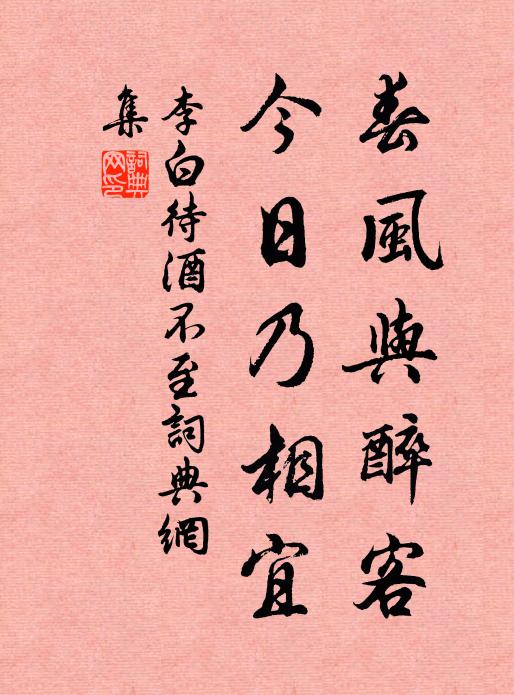 春風與醉客
今日乃相宜
李白待酒不至詞典網
集
詞典
网印